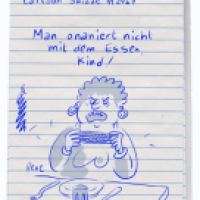 Cartoon Skizze #2027
Man onaniert nicht
mit dem Essen,
Kind!